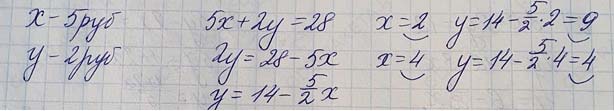 x - 5руб 5x + 2y = 28 x = 2 y = 14 - 5/2 · 2 = 9
y - 2руб 2y = 28 - 5x x = 4 y = 14 - 5/2 · 4 = 4
y = 14 - 5/2 x